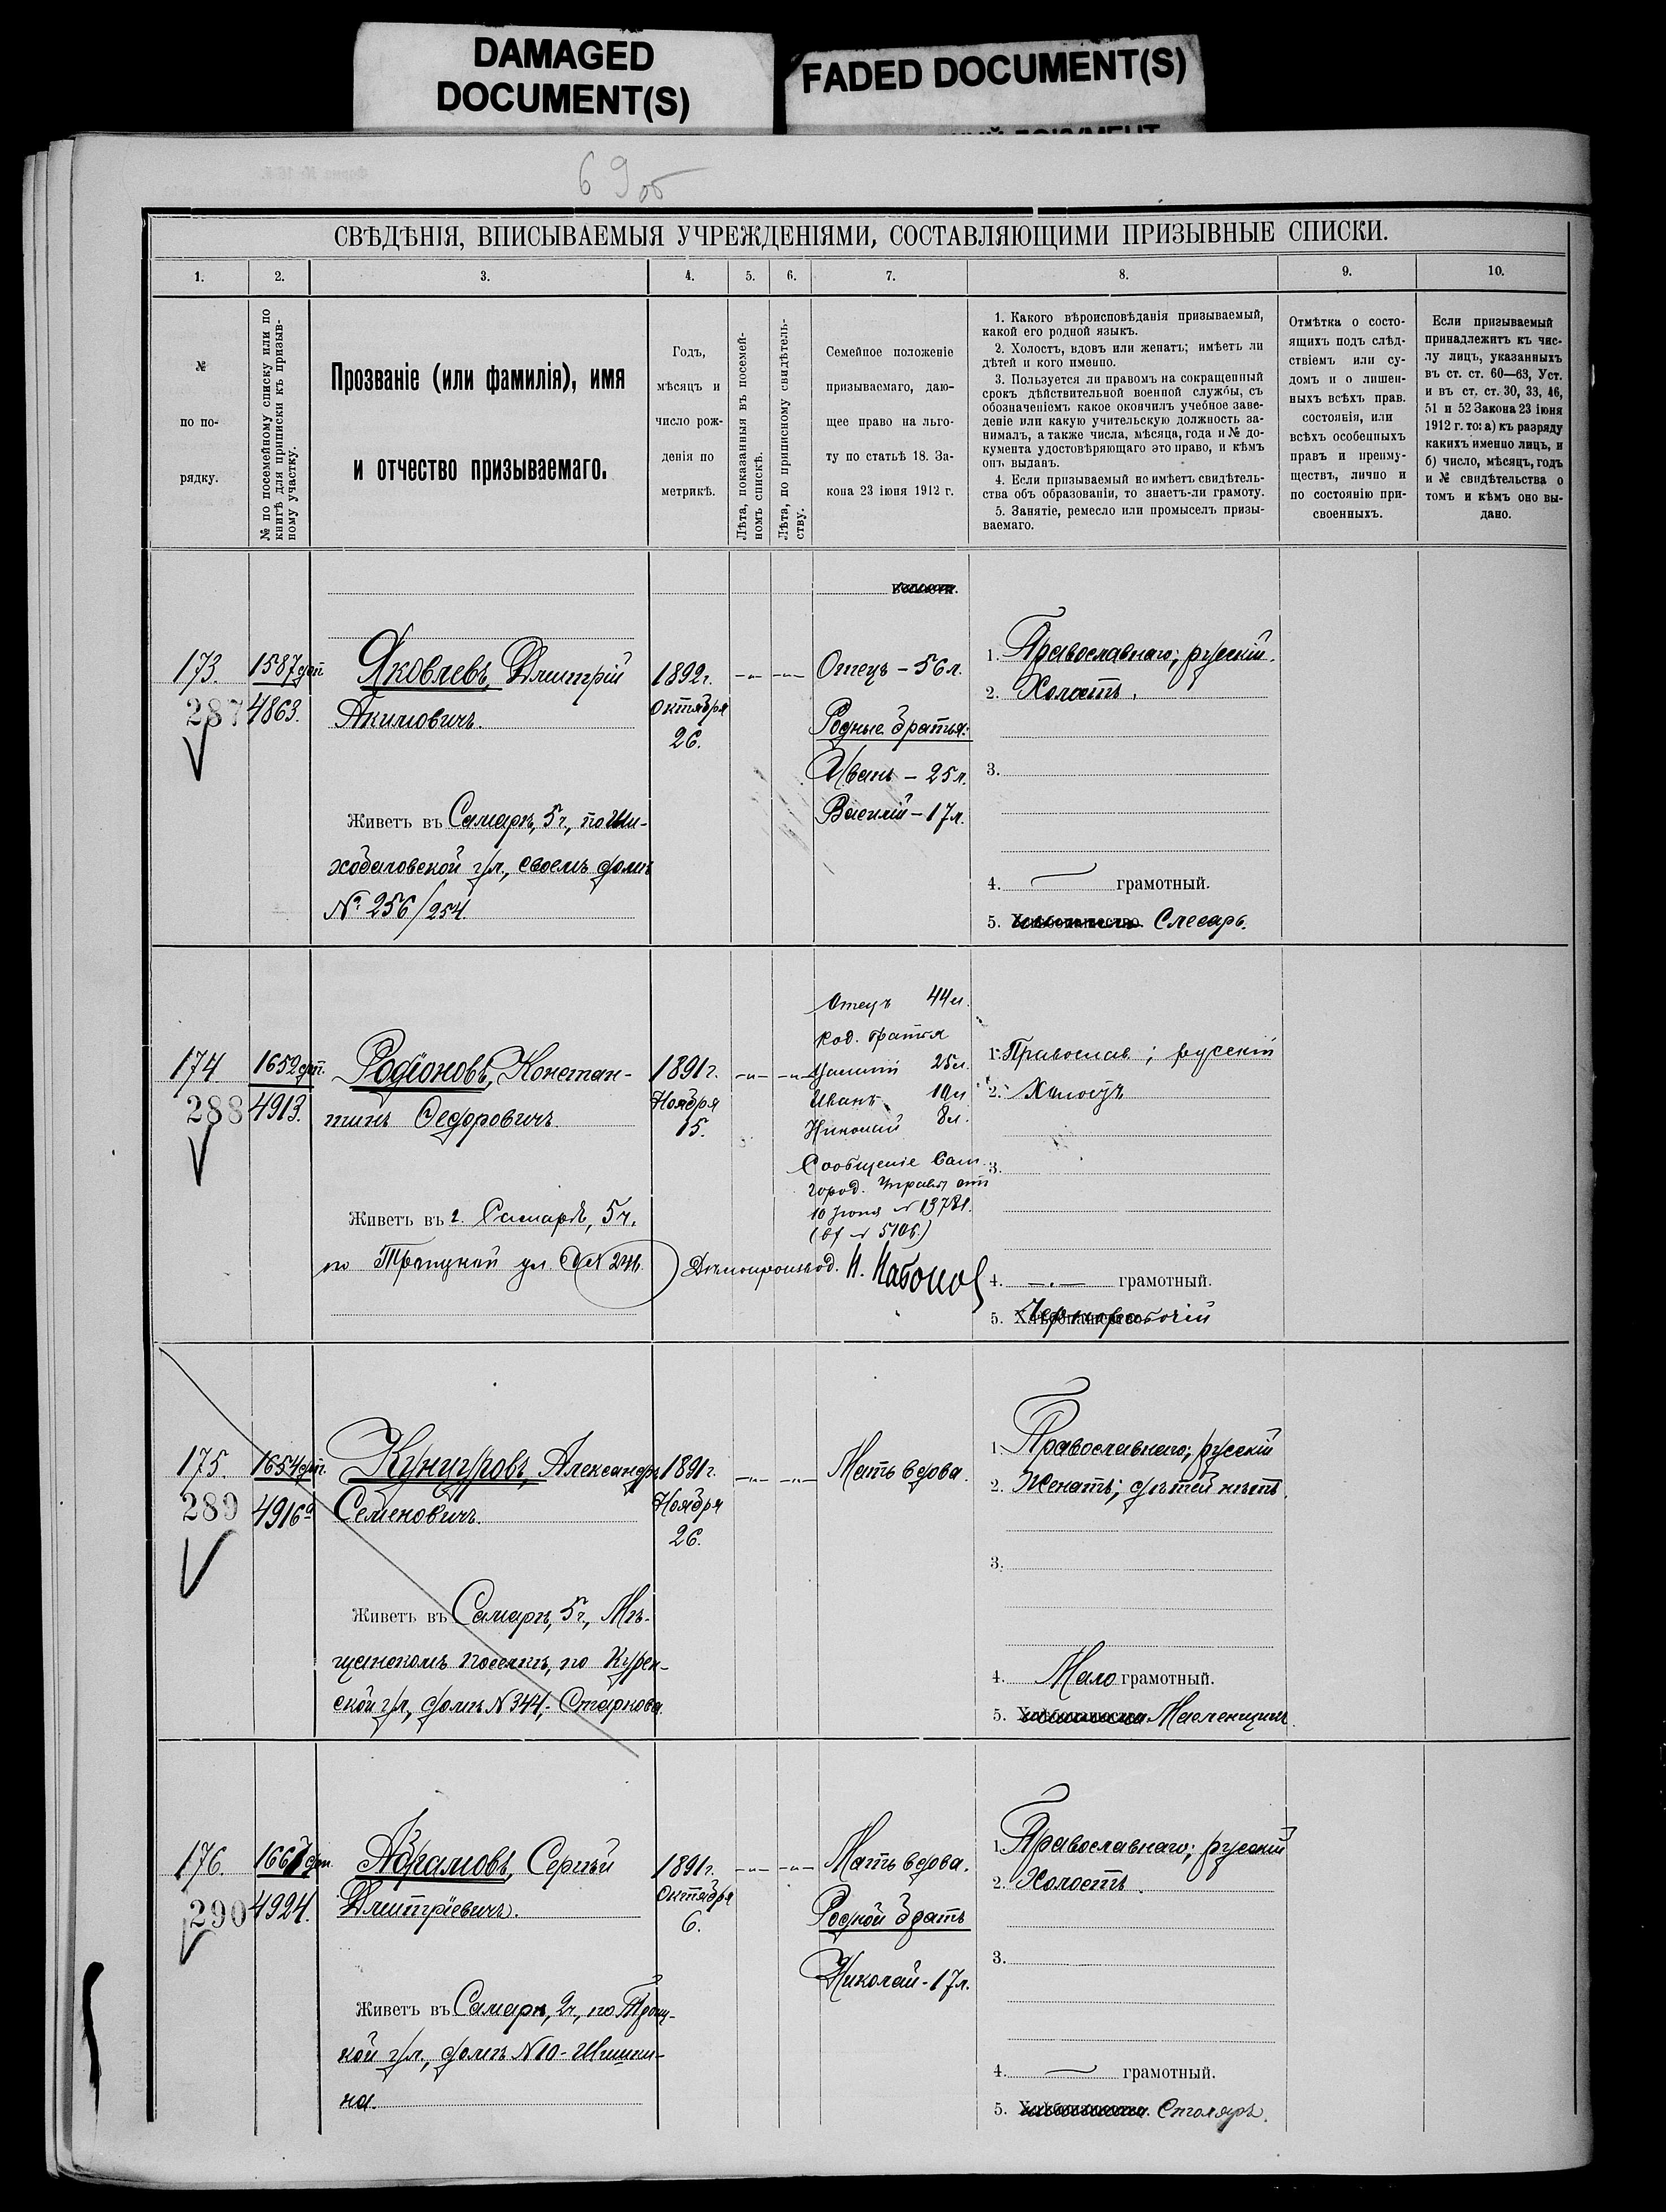 DAMAGED
DOCUMENT(S)
FADED DOCUMENT(S)
69об
СВѢДѢНІЯ, ВПИСЫВАЕМЫЯ УЧРЕЖДЕНІЯМИ, СОСТАВЛЯЮЩИМИ ПРИЗЫВНЫЕ СПИСКИ.
1.
2.
3.
4.
5.
6.
7.
8.
9.
10.
№
по по-
рядку.
№ по посемейному списку или по
книгѣ для приписки къ призыв-
ному участку.
Прозваніе (или фамилія), имя
и отчество призываемаго.
Годъ,
мѣсяцъ и
число рож-
денія по
метрикѣ.
Лѣта, показанныя въ посемей-
номъ спискѣ.
Лѣта, по приписному свидѣтель-
ству.
Семейное положеніе
призываемаго, даю-
щее право на льго-
ту по статьѣ 18. За-
кона 23 іюня 1912 г.
1. Какого вѣроисповѣданія призываемый,
какой его родной языкъ.
2. Холостъ, вдовъ или женатъ; имѣетъ ли
дѣтей и кого именно.
3. Пользуется ли правомъ на сокращенный
срокъ дѣйствительной военной службы, съ
обозначеніемъ какое окончилъ учебное заве-
деніе или какую учительскую должность за-
нималъ, а также числа, мѣсяца, года и № до-
кумента удостовѣряющаго это право, и кѣмъ
онъ выданъ.
4. Если призываемый не имѣетъ свидѣтель-
ства объ образованіи, то знаетъ-ли грамоту.
5. Занятіе, ремесло или промыселъ призы-
ваемаго.
Отмѣтка о состо-
ящихъ подъ слѣд-
ствіемъ или су-
домъ и о лишен-
ныхъ всѣхъ прав.
состоянія, или
всѣхъ особенныхъ
правъ и преиму-
ществъ, лично и
по состоянію при-
своенныхъ.
Если призываемый
принадлежитъ къ чис-
лу лицъ, указанныхъ
въ ст. ст. 60—63, Уст.
и въ ст. ст. 30, 33, 46,
51 и 52 Закона 23 іюня
1912 г. то: а) къ разряду
какихъ именно лицъ, и
б) число, мѣсяцъ, годъ
и № свидѣтельства о
томъ и кѣмъ оно вы-
дано.
волости.
173.
287
1587
4863.
Яковлевъ, Дмитрій
Акимовичъ.
Живетъ въ Самарѣ, 5ч., по Ши-
хобаловской ул., своемъ домѣ
№ 256/254.
1892г.
Октября
26.
Отецъ – 56 л.
Родные братья:
Иванъ – 25 л.
Василій – 17 л.
1. Православнаго; русскій.
2. Холостъ.
3.
4. грамотный.
5. Хлѣбопашество. Слесарь.
174.
288
1652
4913.
Родіоновъ, Констан-
тинъ Ѳедоровичъ.
Живетъ въ г. Самарѣ, 5ч.
по Троицкой ул.
1891г.
Ноября
15.
Отецъ 44 л.
род. братья
25 л.
Иванъ 10 л
Николай 8 л.
Сообщеніе Сам.
город. Управы отъ
10 Іюня № 13781.
Дѣлопроизвод.
1. Православ; русскій
2. Холостъ
3.
4. грамотный.
5. Хлѣбопашество. Чернорабочій
175.
289
1654
4916а
Кунгуровъ, Александръ
Семеновичъ.
Живетъ въ Самарѣ, 5ч., Мѣ-
щанскомъ поселкѣ, по Курен-
ской ул., домъ № 344,- Старкова
1891г.
Ноября
26.
Мать вдова.
1. Православнаго; русскій
2. Женатъ; дѣтей нѣтъ.
3.
4. Мало грамотный.
5. Хлѣбопашество Масленщикъ.
176.
290
4924.
Абрамовъ, Сергѣй
Дмитріевичъ.
Живетъ въ Самарѣ, 2ч., по Троиц-
кой ул., домъ № 10 - Шишки-
на.
1891г.
Октября
6.
Мать вдова.
Родной братъ
Николай - 17 л.
1. Православнаго; русскій
2. Холостъ.
3.
4. грамотный.
5. Хлѣбопашество. Столяръ.